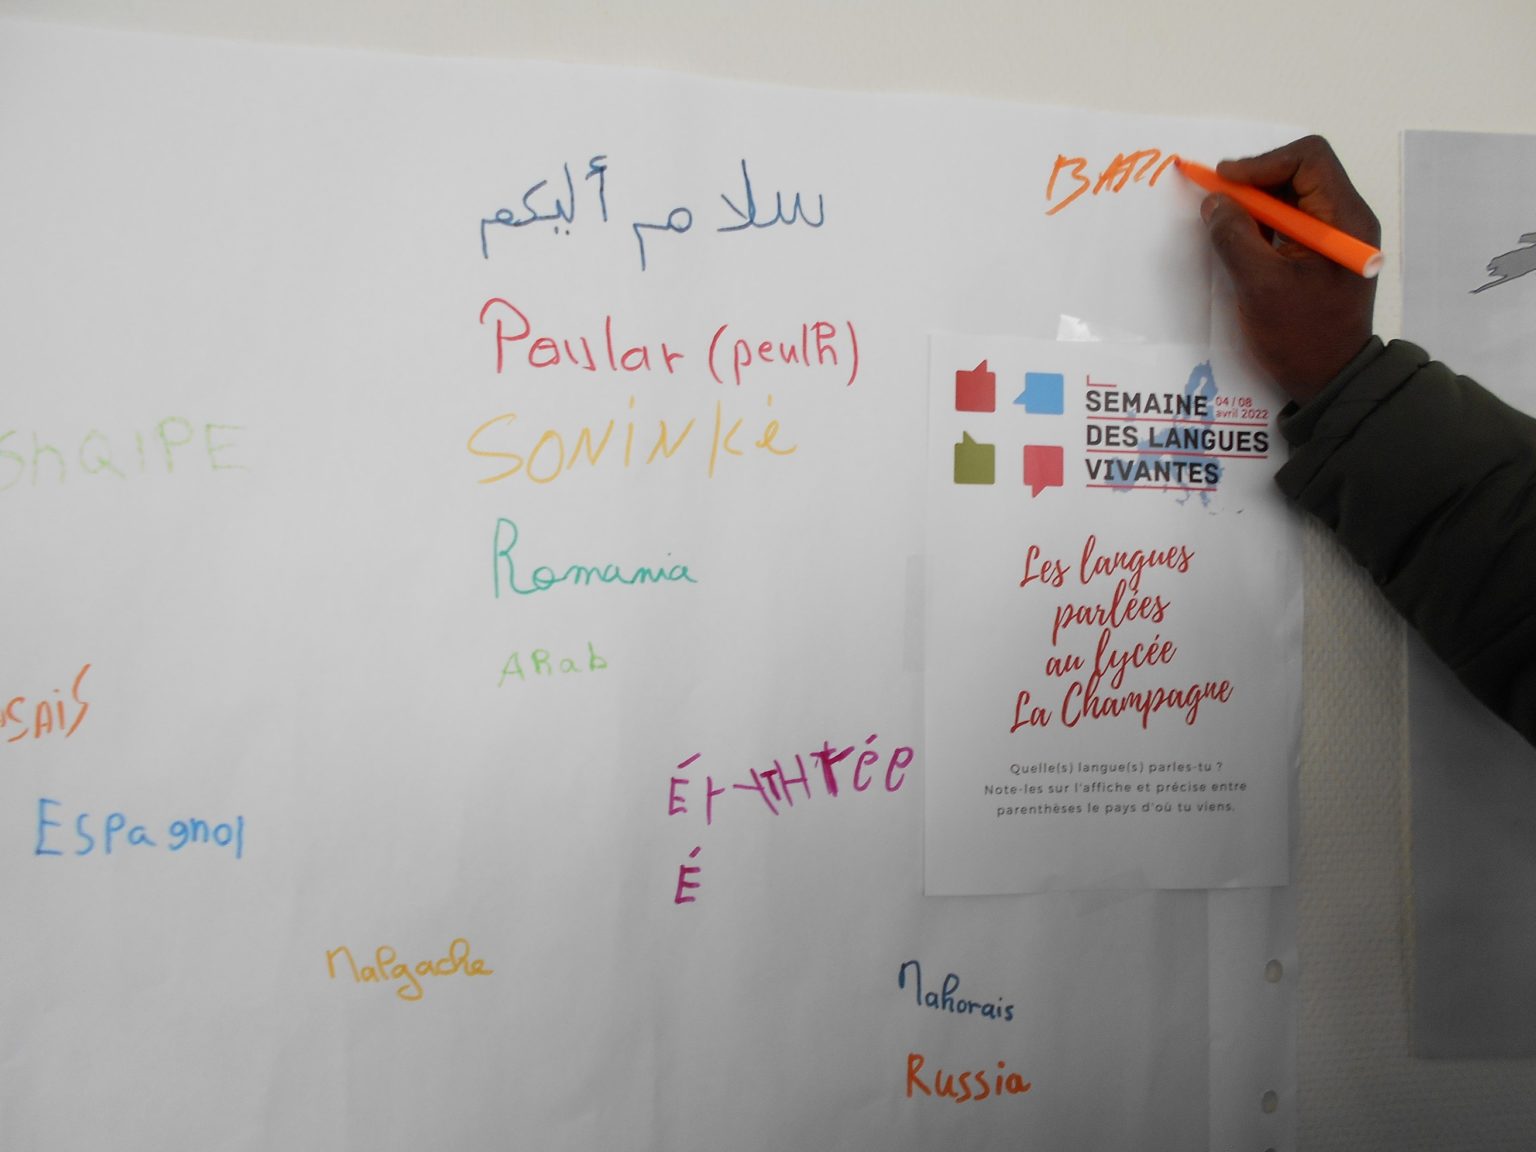 سلام أليكم
Poular (peulh)
SONINKÉ
ShQIPE
Romania
ARab
Espagnol
É
Malgache
Mahorais
Russia
SEMAINE
04 / 08
avril 2022
DES LANGUES
VIVANTES
Les langues
parlées
au lycée
La Champagne
Quelle(s) langue(s) parles-tu ?
Note-les sur l'affiche et précise entre
parenthèses le pays d'où tu viens.